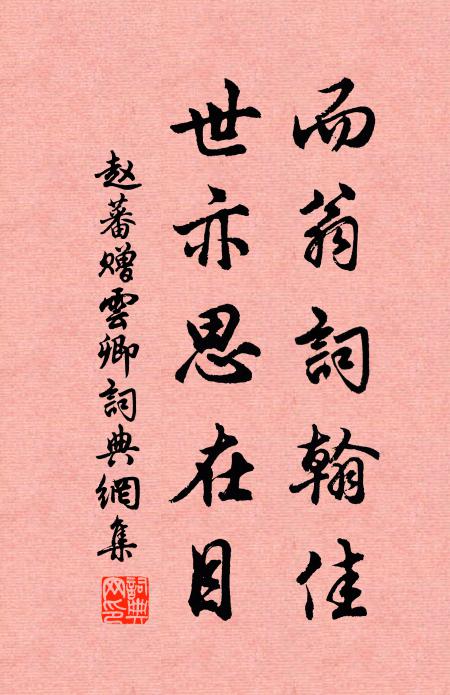 而翁詞翰佳
世亦思在目
赵蕃贈雲卿詞典網集
詞典網印